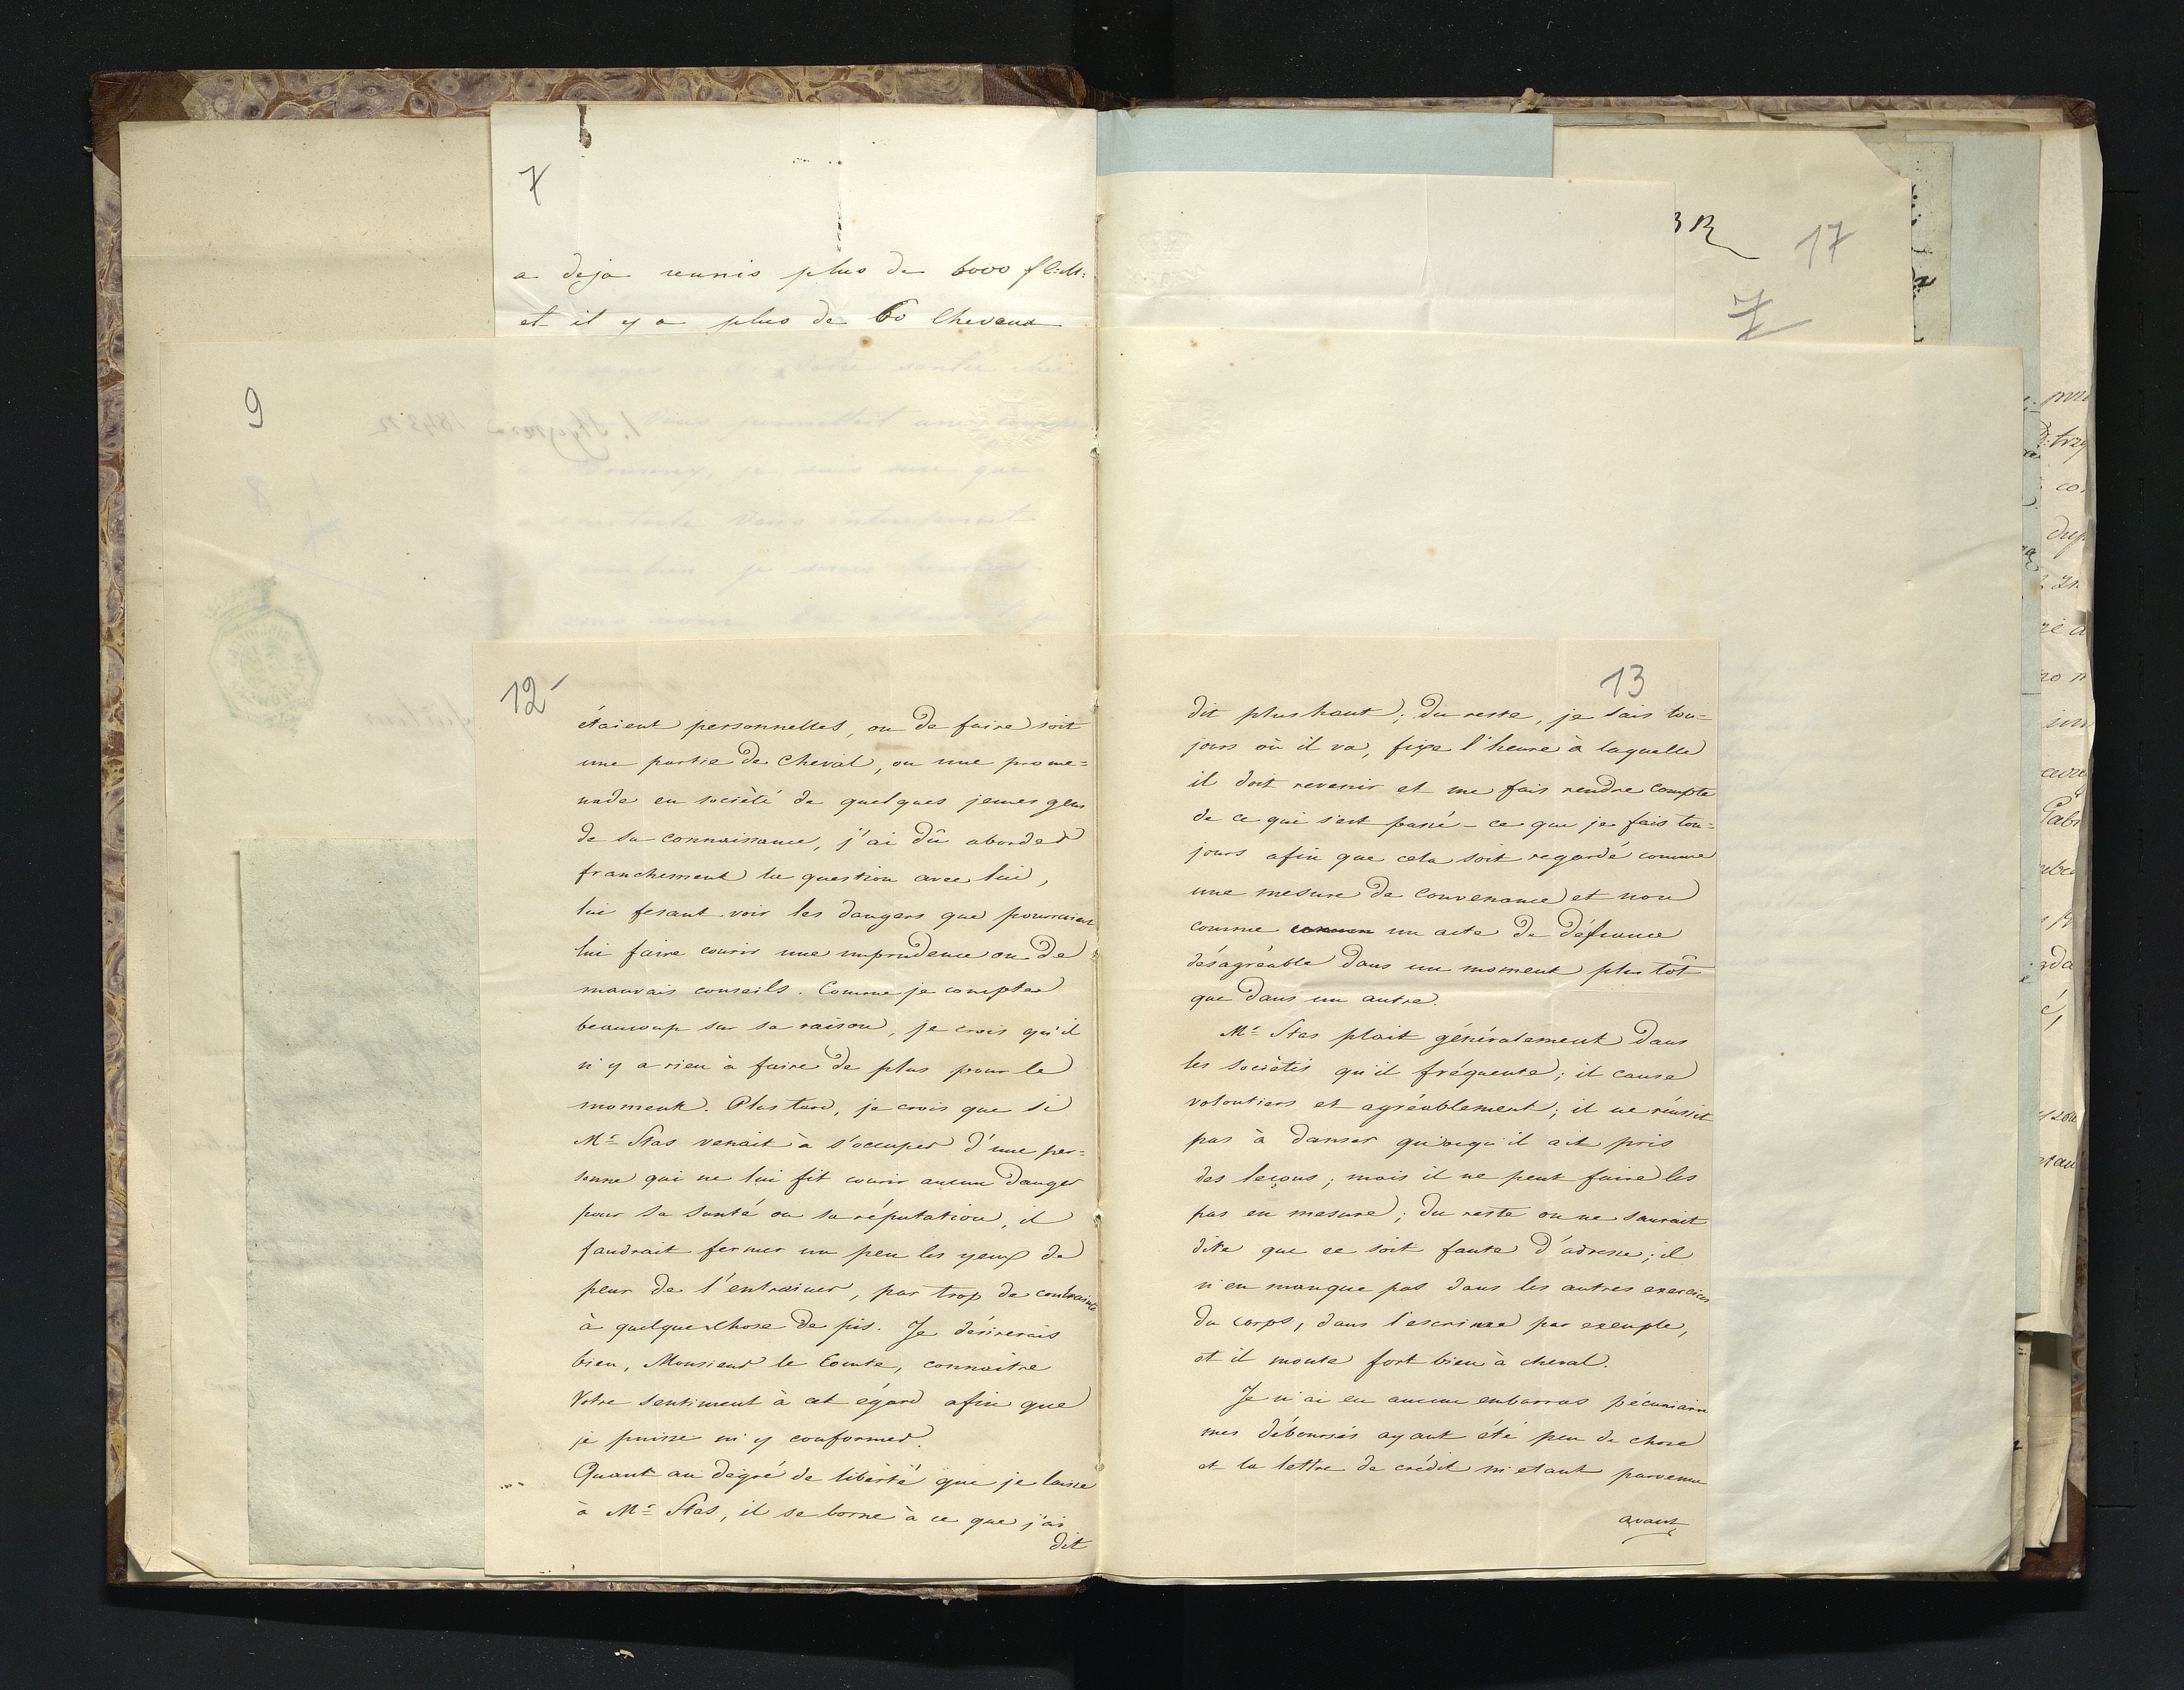 7
a deja reunis plus de 6000 f C:M:
et il y a plus de 60 Chevaux
9
12
étaient personnelles, ou de faire soit
une partie de Cheval, ou une prome=
nade en société de quelques jeunes gens
de sa connaissance, j'ai dû aborder
franchement la question avec lui,
lui fesant voir les dangers que pourraient
lui faire courir une imprudence ou de
mauvais conseils. Comme je compte
beaucoup sur sa raison, je crois qu'il
n'y a rien à faire de plus pour le
moment. Plus tard, je crois que si
Mr Stas venait à s'occuper d'une per=
sonne qui ne lui fit courir aucun danger
pour sa santé ou sa réputation, il
faudrait fermer un peu les yeux de
peur de l'entrainer, par trop de contrainte
à quelque chose de pis. Je désirerais
bien, Monsieur le Comte, connaitre
Votre sentiment à cet égard afin que
je puisse m'y conformer.
Quant au dégré de libérté que je laisse
à Mr Stas, il se borne à ce que j'ai
dit
13
dit plus haut; du reste, je sais tou=
jours où il va, fixe l'heure à laquelle
il doit revenir et me fais rendre compte
de ce qui s'est passé - ce que je fais tou=
jours afin que cela soit regardé comme
une mesure de convenance et non
comme un acte de défiance
désagréable dans un moment plus tôt
que dans un autre.
Mr Stas plait généralement dans
les sociétés qu'il fréquente; il cause
volontiers et agréablement; il ne réussit
pas à danser quoiqu'il ait pris
des leçons; mais il ne peut faire les
pas en mesure; du reste on ne saurait
dire que ce soit faute d'adresse; il
n'en manque pas dans les autres exercices
du corps, dans l'escrime par exemple,
et il monte fort bien à cheval.
Je n'ai eu aucun embarras pécuniaire
mes déboursés ayant été peu de chose
et la lettre de crédit m'etant parvenue
avant
17
7